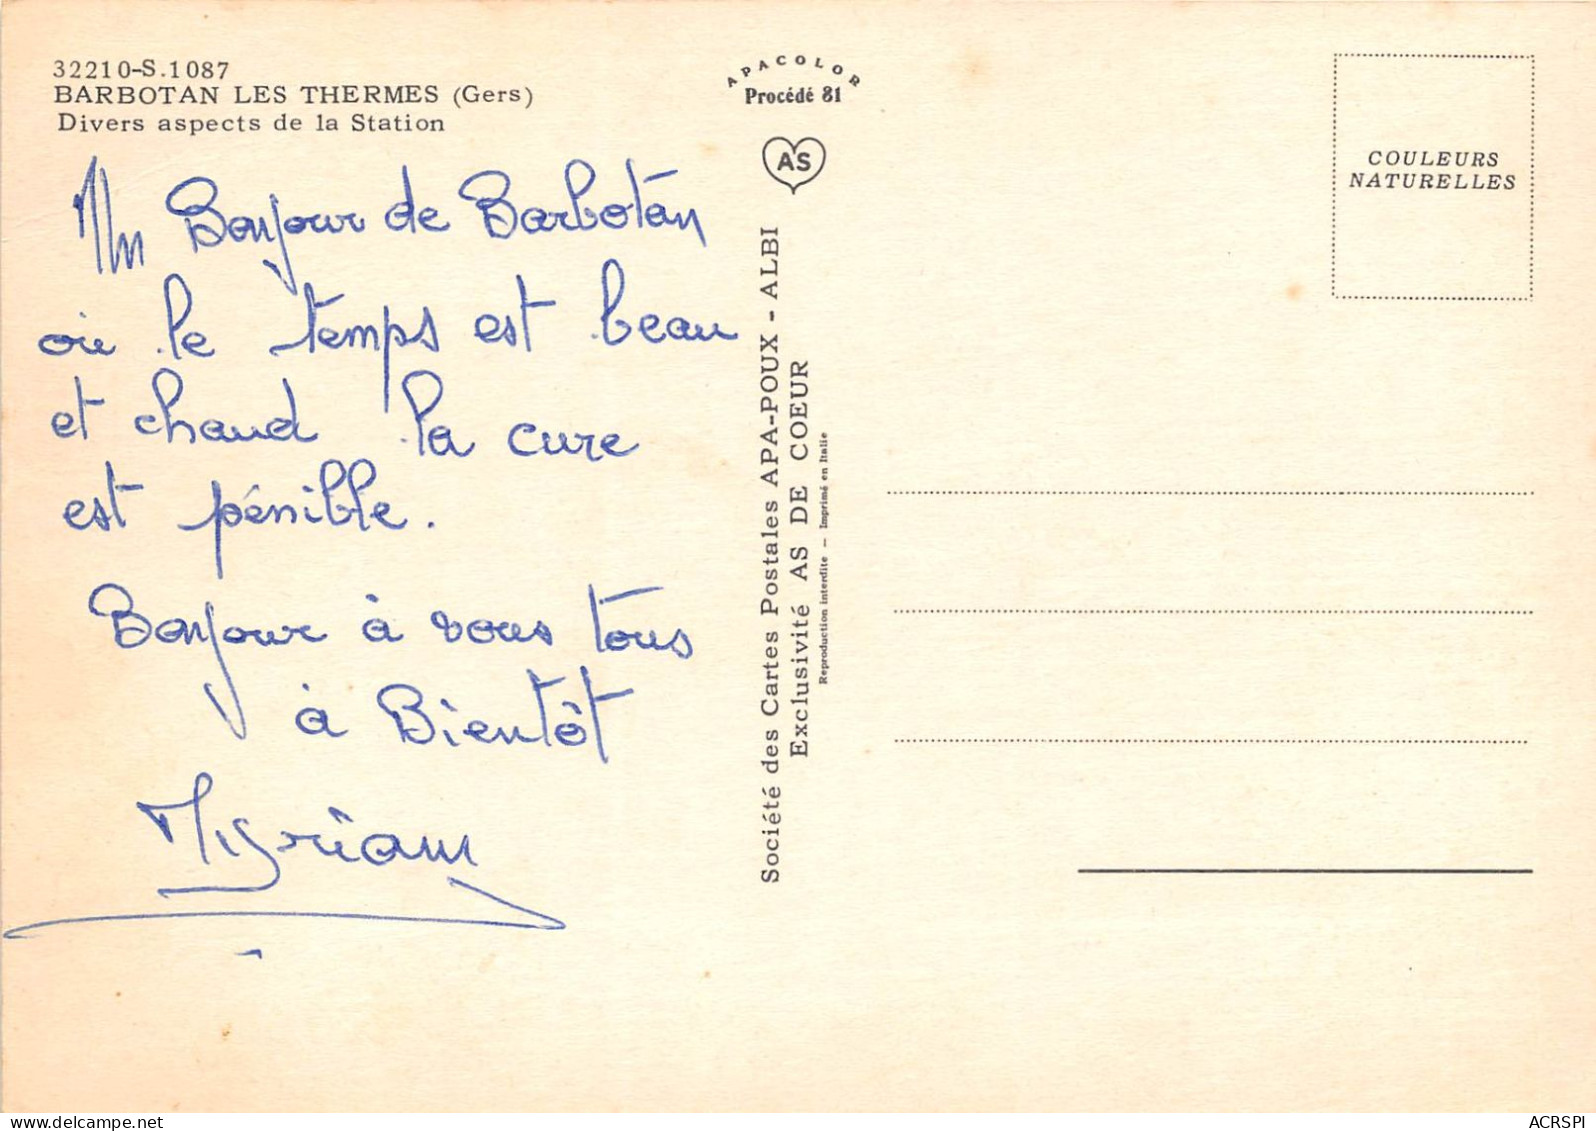 32210-S.1087
BARBOTAN LES THERMES (Gers)
Divers aspects de la Station
Un Bonjour de Barbotan
où le temps est beau
et chaud la cure
est pénible.
Bonjour à vous tous
à Bientôt
Myriam
APACOLOR
Procédé 81
AS
Société des Cartes Postales APA-POUX - ALBI
Exclusivité AS DE COEUR
Reproduction interdite - Imprimé en Italie
COULEURS
NATURELLES
delcampe.net
ACRSPI